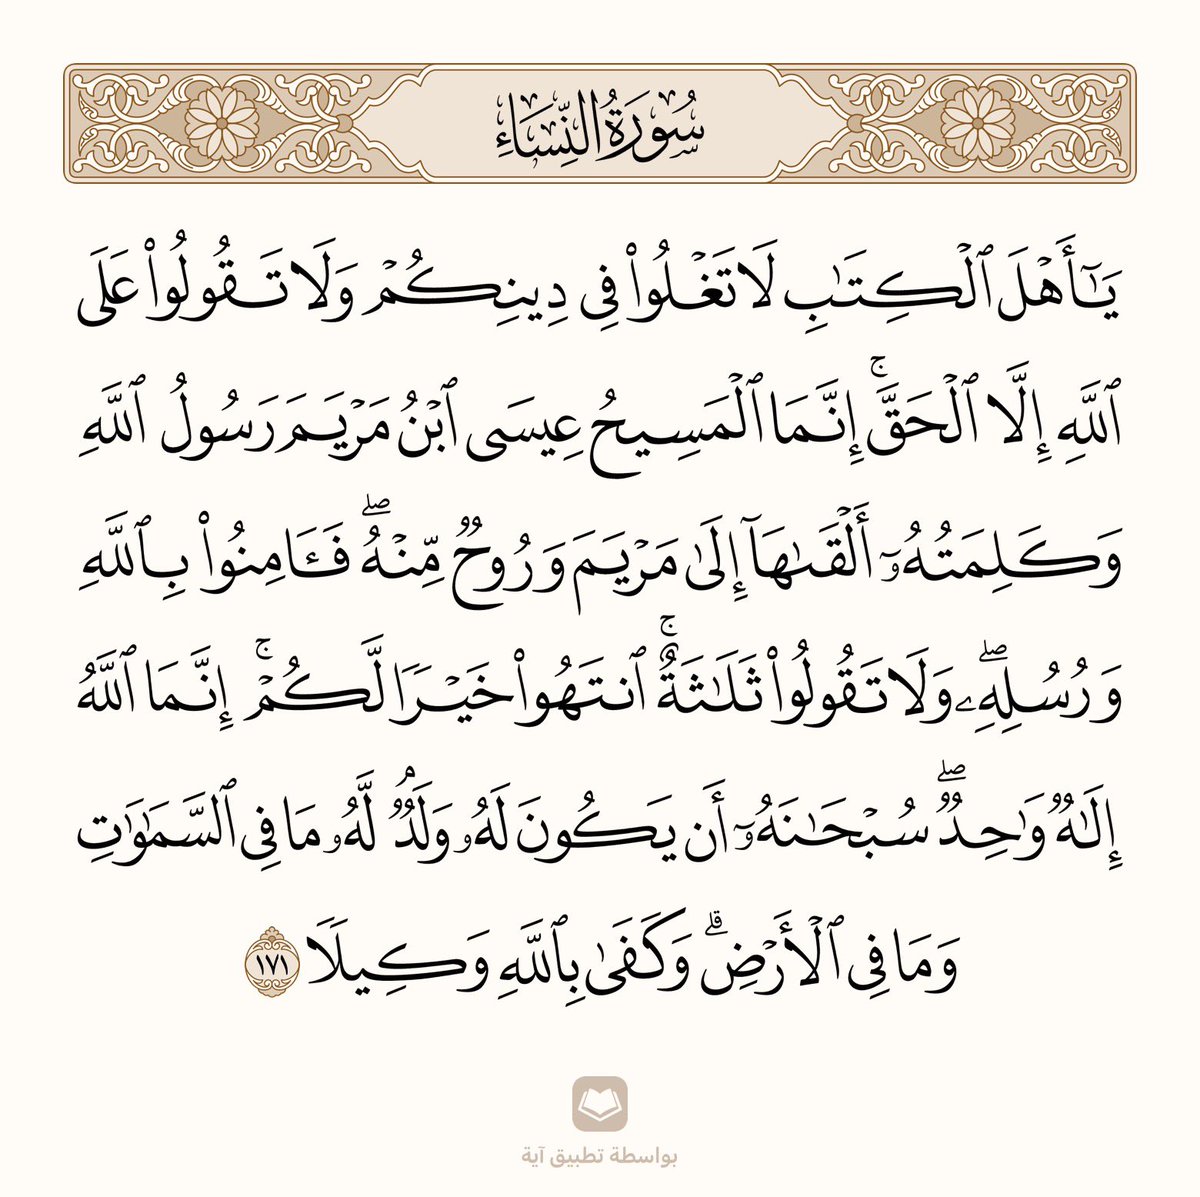 سُورَةُ النِّسَاءِ
يَٰٓأَهْلَ ٱلْكِتَٰبِ لَا تَغْلُوا۟ فِى دِينِكُمْ وَلَا تَقُولُوا۟ عَلَى
ٱللَّهِ إِلَّا ٱلْحَقَّ ۚ إِنَّمَا ٱلْمَسِيحُ عِيسَى ٱبْنُ مَرْيَمَ رَسُولُ ٱللَّهِ
وَكَلِمَتُهُۥٓ أَلْقَىٰهَآ إِلَىٰ مَرْيَمَ وَرُوحٌ مِّنْهُ ۖ فَـَٔامِنُوا۟ بِٱللَّهِ
وَرُسُلِهِۦ ۖ وَلَا تَقُولُوا۟ ثَلَٰثَةٌ ۚ ٱنتَهُوا۟ خَيْرًا لَّكُمْ ۚ إِنَّمَا ٱللَّهُ
إِلَٰهٌ وَٰحِدٌ ۖ سُبْحَٰنَهُۥٓ أَن يَكُونَ لَهُۥ وَلَدٌ ۘ لَّهُۥ مَا فِى ٱلسَّمَٰوَٰتِ
وَمَا فِى ٱلْأَرْضِ ۗ وَكَفَىٰ بِٱللَّهِ وَكِيلًا ١٧١
بواسطة تطبيق آية